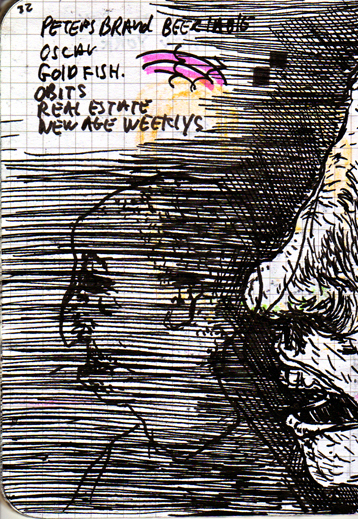 32
PETERS BRAND BEER LABLE
OSCAR
GOLDFISH.
OBITS
REAL ESTATE
NEW AGE WEEKLYS